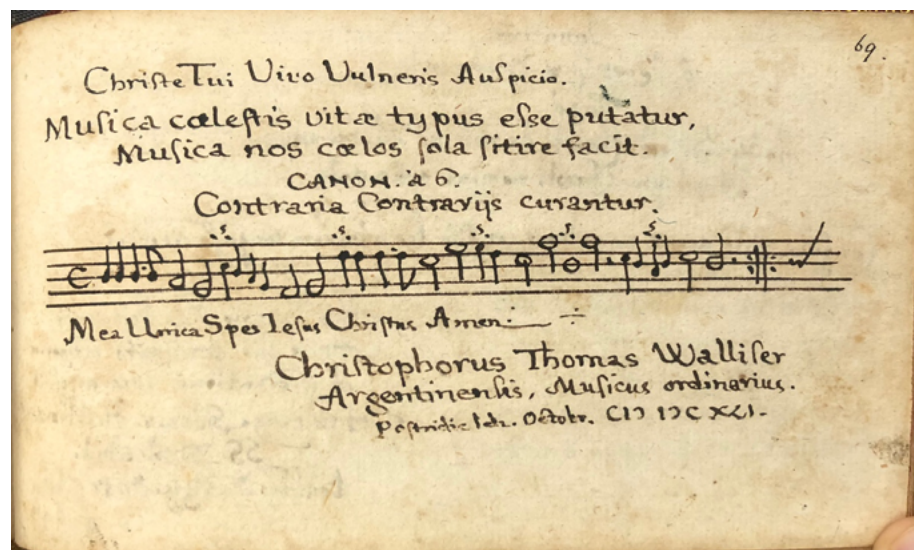 69.
Christe Tui Vivo Vulneris Auspicio.
Musica cœlestis vitæ typus esse putatur,
Musica nos cœlos sola sitire facit.
CANON. à 6.
Contraria Contrarijs curantur.
Mea Unica Spes Iesus Christus Amen
Christophorus Thomas Walliser
Argentinensis, Musicus ordinarius.
Postridie Id. Octobr. CIƆ IƆC XLI.